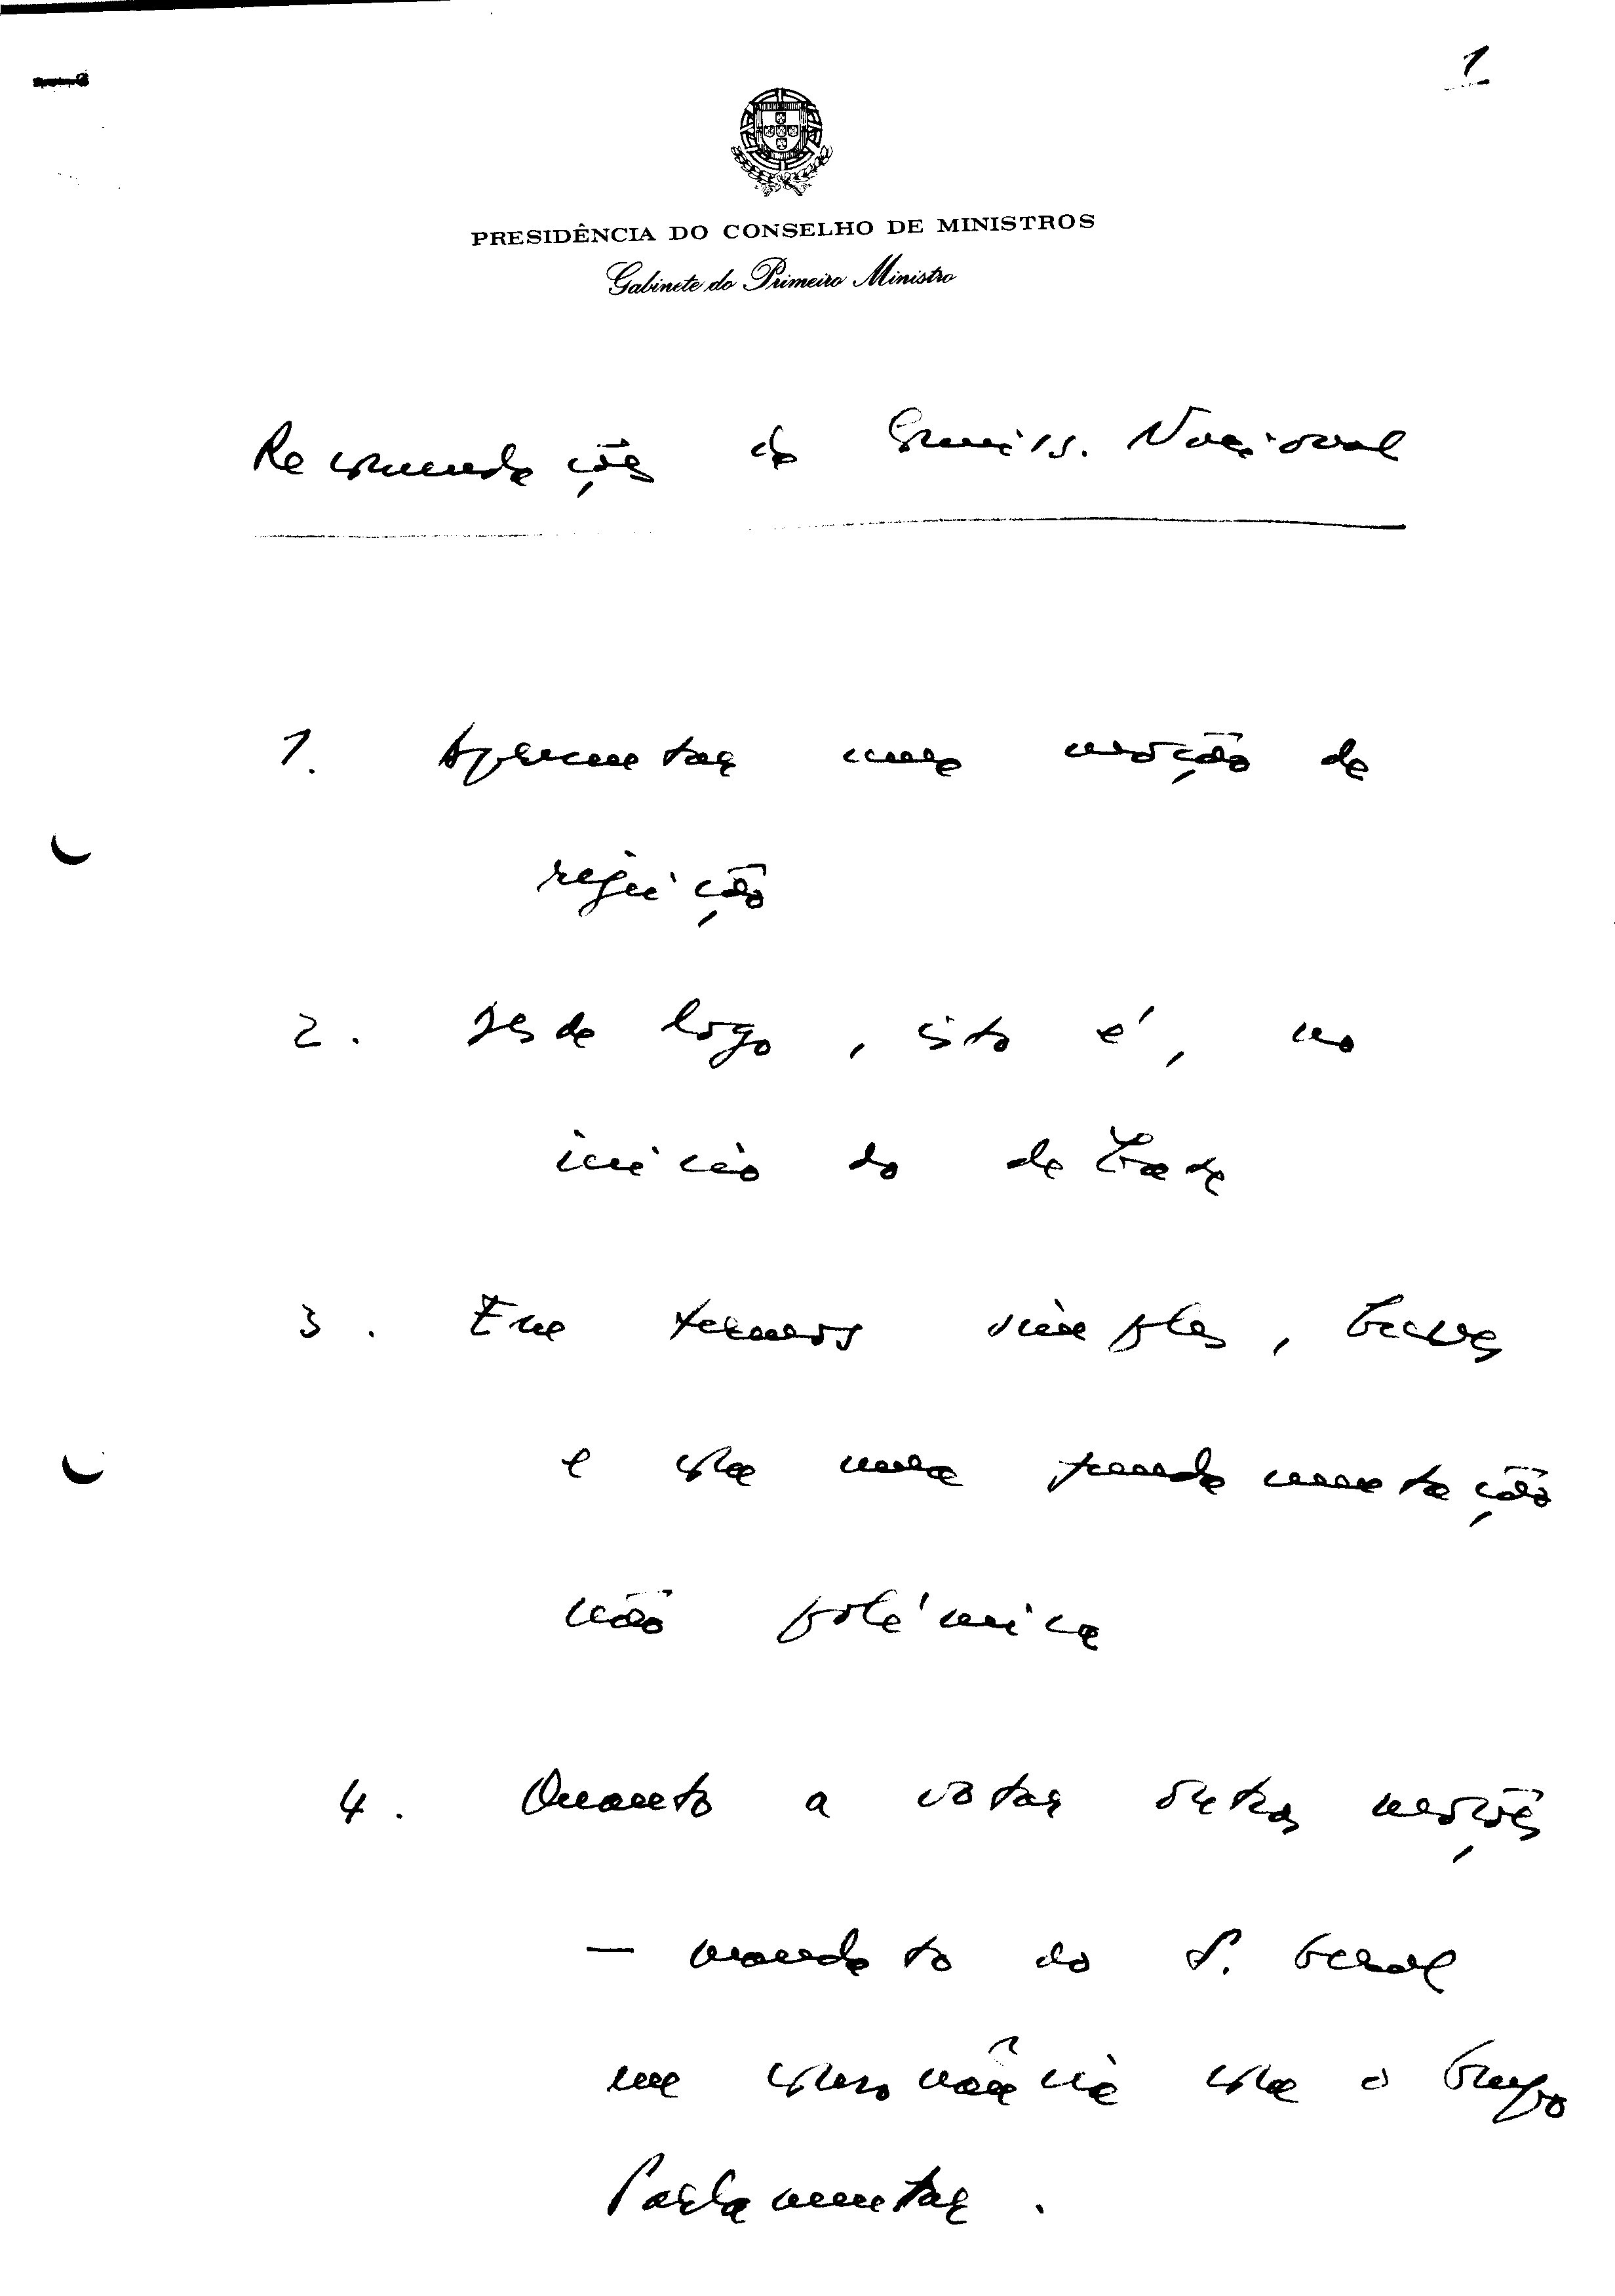 1
PRESIDÊNCIA DO CONSELHO DE MINISTROS
Gabinete do Primeiro Ministro
Recomendações da Comiss. Nacional
1. Apresentar uma moção de
rejeição
2. Desde logo, isto é, no
início do debate
3. Em termos simples, breves
e com uma fundamentação
não polémica
4. Quanto a votar outras moções
— mandato do S. Geral
em consonância com o Grupo
Parlamentar.